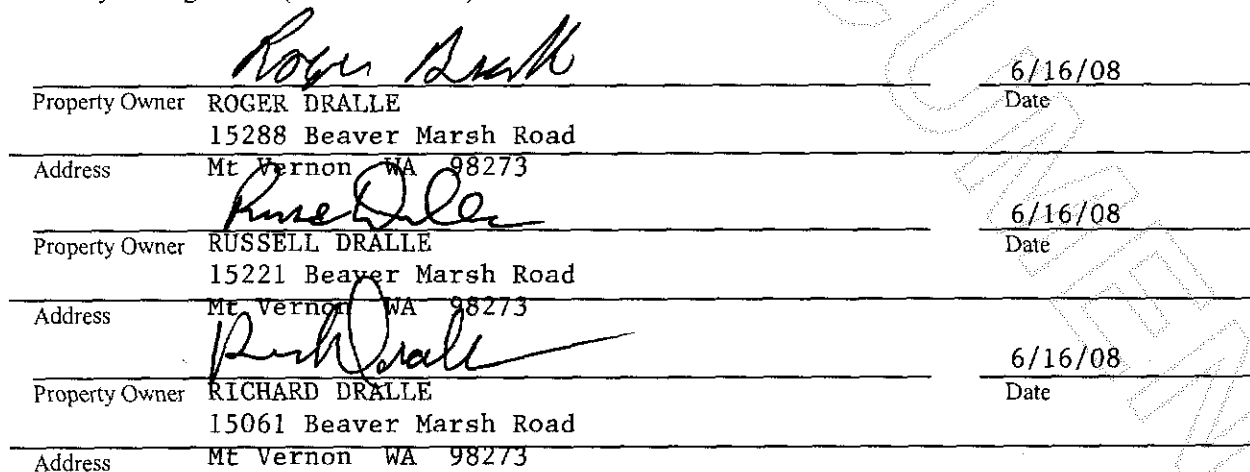 6/16/08
Property Owner ROGER DRALLE Date
15288 Beaver Marsh Road
Address Mt Vernon WA 98273
6/16/08
Property Owner RUSSELL DRALLE Date
15221 Beaver Marsh Road
Address Mt Vernon WA 98273
6/16/08
Property Owner RICHARD DRALLE Date
15061 Beaver Marsh Road
Address Mt Vernon WA 98273